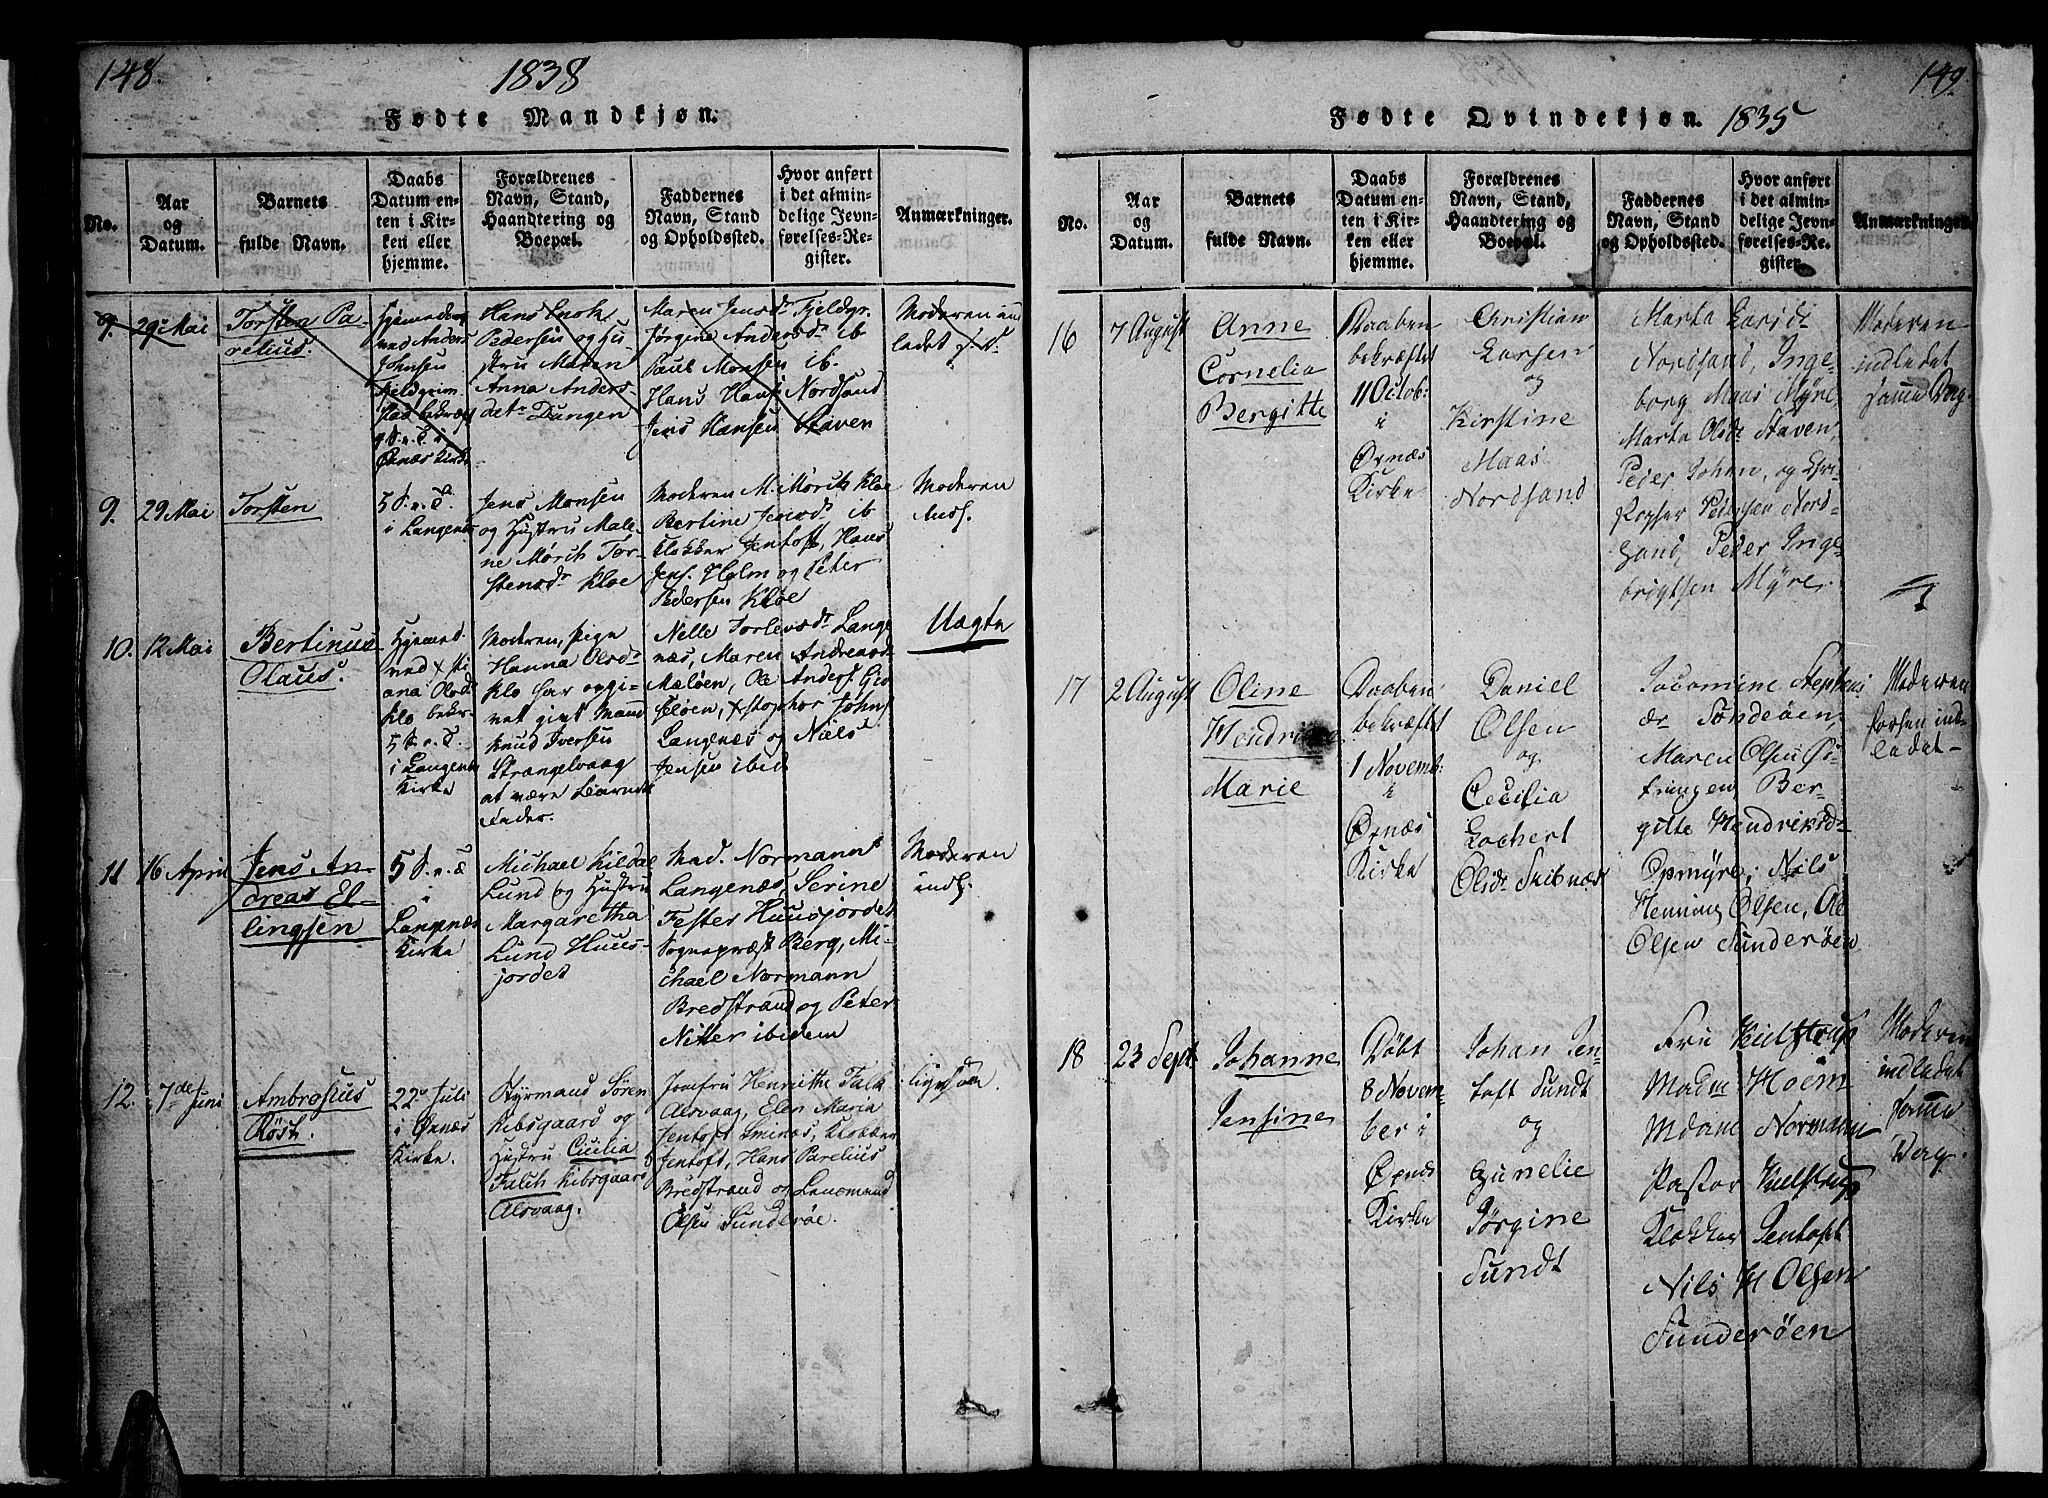 148.
1838
Fødte Mandkjøn.
No.
Aar
og
Datum.
Barnets
fulde Navn.
Daabs
Datum en-
ten i Kir-
ken eller
hjemme.
Forældrenes
Navn, Stand,
Haandtering og
Boepæl.
Faddernes
Navn, Stand
og Opholdssted.
Hvor anført
i det almin-
delige Jevn-
førelses-Re-
gister.
Anmærkninger.
9.
29 Mai
Torsten Pa-
relius.
Hjemedøbt
ved Anders
Johnsen
i
Øxnæs Kirke
Hans Enok
Pedersen og Hu-
stru Maren
Anna Anders-
datr Dungen
Maren Jensdr Fjeldgr.
Jørgine Andersdr ib
Paul Monsen ib.
Hans Hans. Nordsand
Jens Hansen Staven
Moderen ind
ledet s. D.
9.
29 Mai
Torsten
5 S. e. T.
i Langenæs
Jens Monsen
og Hustru Male-
ne Mørch Tor-
stensdr Kloe
Moderen M. Mørch Kloe
Bertine Jensdr ib
Klokker Jentoft, Hans
Jens. Holm og Peter
Pedersen Kloe
Moderen
indl.
10.
12 Mai
Bertinus
Olaus.
Hjemmed.
ved Xsti-
ana Olsdr
Klo bekr.
5 S. e. T.
i Langenæs
Kirke
Moderen, Pige
Hanna Olsdr
Klo har opgi-
vet givt Mand
Knud Iversen
Strengelvaag
at være Barnets
Fader.
Nelle Torlevsdr Lange
næs, Maren Andreasd
Meløen, Ole Anders. Gis
seløen, Xstophor Johns
Langenæs og Niels
Jensen ibid
Uægte
11
16 April
Jens An-
dreas El-
lingsen
5 S. e. T
i
Langenæs
Kirke
Michael Kildal
Lund og Hustru
Margaretha
Lund Huus-
jordet
Mad. Normann
Langenæs, Serine
Fester Huusjordet
Sognepræst Berg, Mi-
chael Normann
Bredstrand og Peter
Nitter ibidem
Moderen
indl.
12.
7de Juni
Ambrosius
Røst.
22 Juli
i Øxnæs
Kirke.
Styrmand Søren
Kibsgaard og
Hustru Cecilia
Falch Kibsgaard
Alsvaag.
Jomfru Henritte Falch
Alsvaag, Elen Maria
Jentoft Sminæs, Klokker
Jentoft, Hans Parelius
Bredstrand og Lensmand
Olsen Sunderøe.
ligesaa.
149.
Fødte Qvindekjøn. 1835
No.
Aar
og
Datum.
Barnets
fulde Navn.
Daabs
Datum en-
ten i Kir-
ken eller
hjemme.
Forældrenes
Navn, Stand,
Haandtering og
Boepæl.
Faddernes
Navn, Stand
og Opholdssted.
Hvor anført
i det almin-
delige Jevn-
førelses-Re-
gister.
Anmærkninger
16
7 August
Anne
Cornelia
Bergitte
Daaben
bekræftet
11 Octob:
i
Øxnæs
Kirke
Christian
Larsen
og
Kirstine
Maas
Nordsand
Marta Larsdr
Nordsand, Inge-
borg Maas Myre
Marta Olsdr Staven,
Peder Johan, og
Pedersen Nord-
sand, Peder Inge-
brigtsen Myre.
Moderen
indledet
samme Dag.
17
2 August
Oline
Hendrikke
Marie
Daaben
bekræftet
1 Novemb:
i
Øxnæs
Kirke
Daniel
Olsen
og
Cecilia
Lochert
Olsdr Skibnæs
Jacomine Stephens
dr Sonderøen
Maren Olsen
Ber-
gitte Hendriksdr
Opmyre, Nils
Henning Olsen, Ole
Olsen Sunderøen
Moderen
forhen ind-
ledet
18
23 Sept.
Johanne
Jensine
Døbt
8 Novem-
ber i
Øxnæs
Kirke
Johan Jen-
toft Sundt
og
Gunelie
Jørgine
Sundt
Fru Kielstrup
Madm Hoem
Mdme Normann
Pastor Kielstrup
Klokker Jentoft
Nils H Olsen
Sunderøen
Moderen
indledet
samme
Dag.